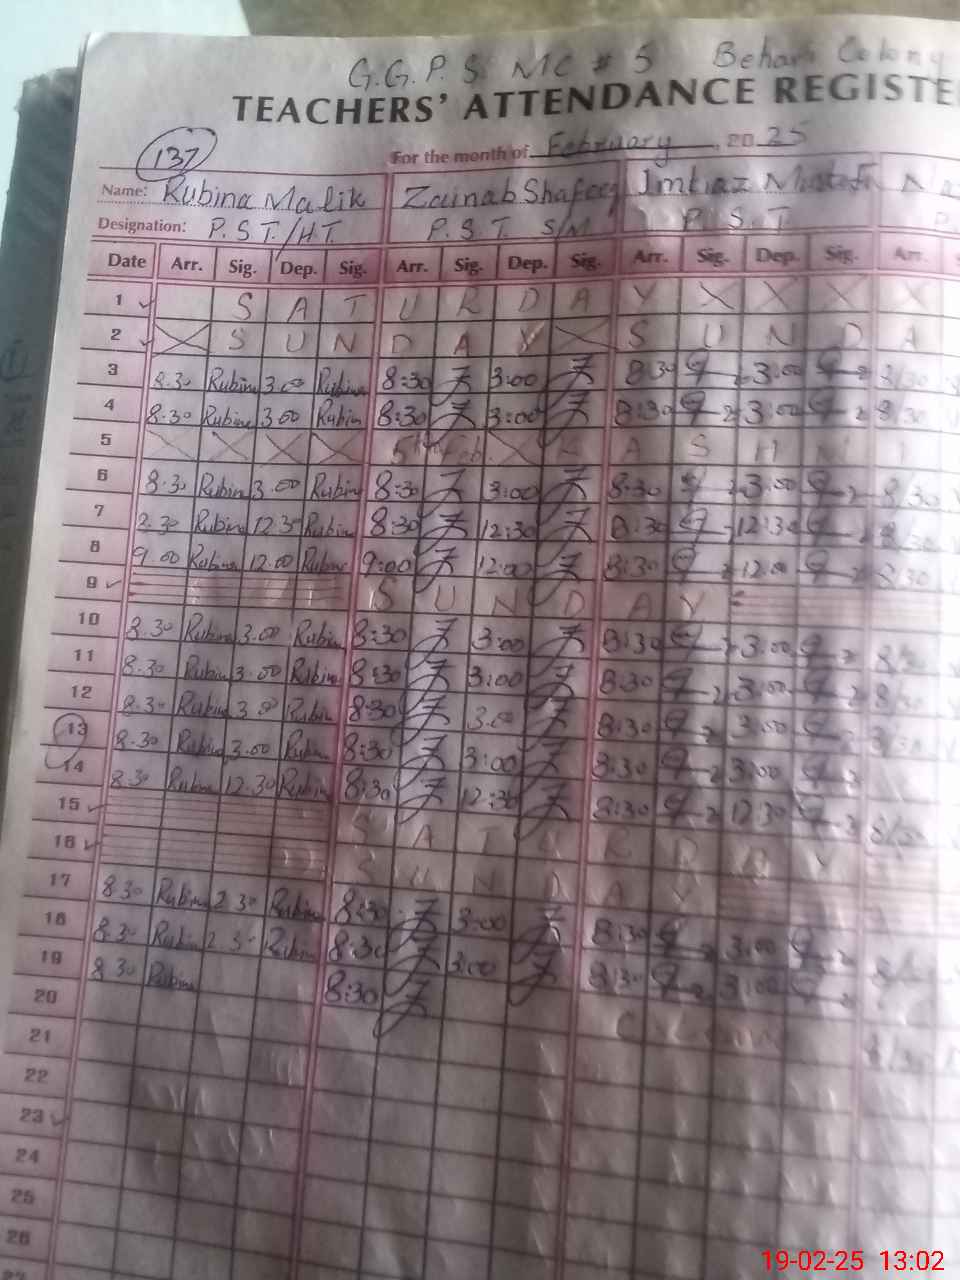 G.G.P.S. MC # 5 Behar Colony
TEACHERS' ATTENDANCE REGISTE
137 For the month of February, 2025
Name: Rubina Malik Zainab Shafeeq Imtiaz
Designation: P.S.T/H.T. P.S.T. S/M P.S.T P.
Date Arr. Sig. Dep. Sig. Arr. Sig. Dep. Sig. Arr. Sig. Dep. Sig. Arr. S
1 S A T U R D A Y X X X X X
2 S U N D A Y S U N D A
3 8.30 Rubina 3.00 Rubina 8:30 3:00 8:30 3:00 8/30
4 8.30 Rubina 3.00 Rubina 8:30 3:00 8:30 3:00 8/30
5 X X X X 5th Feb. X K A S H M I
6 8.30 Rubina 3.00 Rubina 8:30 3:00 8:30 3:00 8/30
7 8.30 Rubina 12.30 Rubina 8:30 12:30 8:30 12:30 8/30
8 9.00 Rubina 12.00 Rubina 9:00 12:00 8:30 12.00 8/30
9 S U N D A Y
10 8.30 Rubina 3.00 Rubina 8:30 3:00 8:30 3:00
11 8.30 Rubina 3.00 Rubina 8:30 3:00 8:30 3:00
12 8.30 Rubina 3.00 Rubina 8:30 3:00 8:30 3:00
13 8.30 Rubina 3.00 Rubina 8:30 3:00 8:30 3:00
14 8.30 Rubina 12.30 Rubina 8:30 12:30 8:30 12:30
15 S A T U R D A Y
16 S U N D A Y
17 8.30 Rubina 2.30 Rubina 8:30 3:00 8:30 3:00
18 8.30 Rubina 2.30 Rubina 8:30 3:00 8:30 3:00
19 8.30 Rubina 8:30
20
21
22
23
24
25
26
19-02-25 13:02